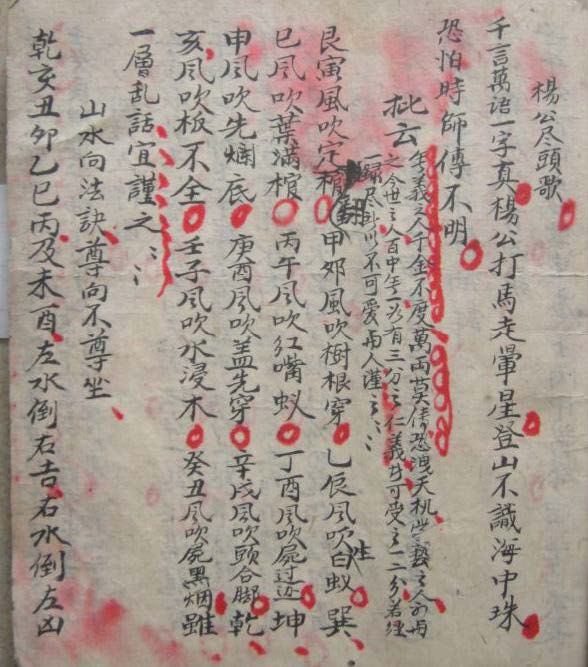 楊公尽頭歌
千言萬語一字真楊公打馬走暈星登山不識海中珠
恐怕時師傳不明
批云
義之人千金不度萬両莫傳恐洩天机之人勿与
之今世之人百中一必有三分之仁義可受之一二分若經
尽不可愛与人謹之〻〻
艮寅風吹定棺翻甲卯風吹樹根穿乙辰風吹生白蚁巽
巳風吹葉滿棺丙午風吹红嘴蚁丁酉風吹屍过坤
申風吹先爛底庚酉風吹盖先穿辛戌風吹頭合脚乾
亥風吹板不全壬子風吹水浸木癸丑風吹屍黑烟雖
一層乱話宜謹之〻〻
山水向法訣尊向不尊坐
乾亥丑卯乙巳丙及未酉左水倒右吉右水倒左凶